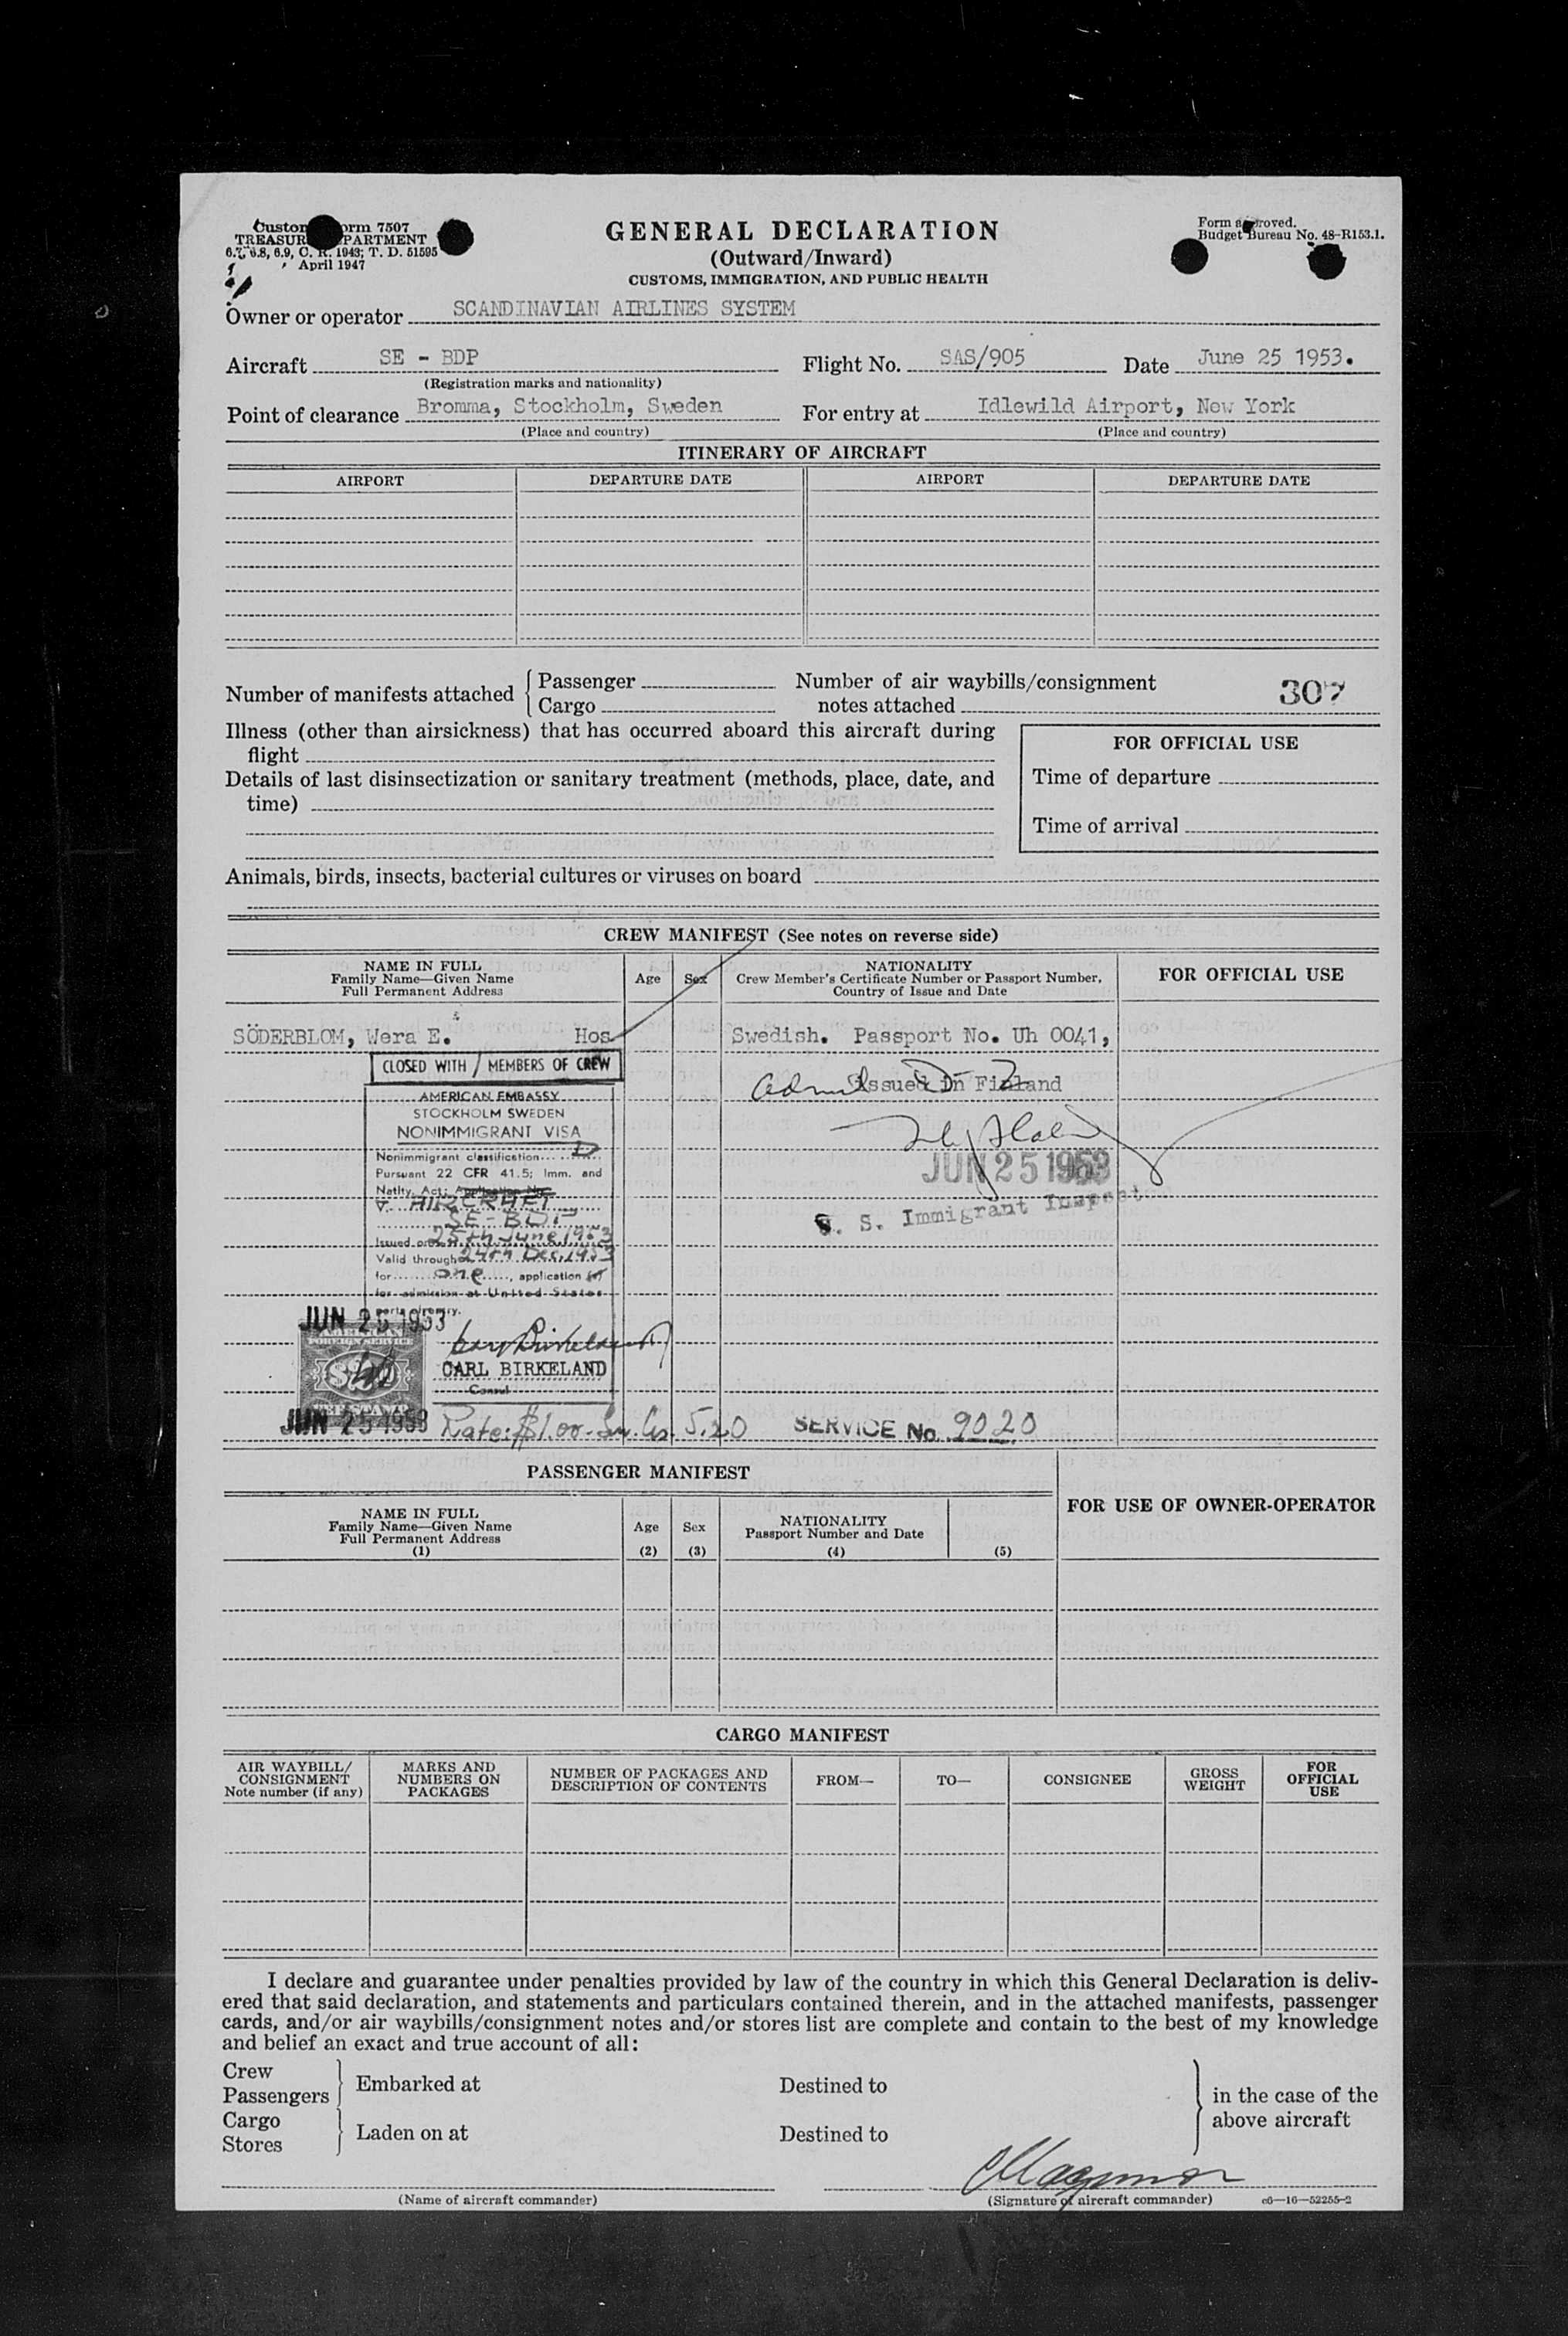 Customs Form 7507
TREASURY DEPARTMENT
6.7, 6.8, 6.9, C. R. 1943; T. D. 51595
April 1947
GENERAL DECLARATION
(Outward/Inward)
CUSTOMS, IMMIGRATION, AND PUBLIC HEALTH
Form approved.
Budget Bureau No. 48-R153.1.
Owner or operator SCANDINAVIAN AIRLINES SYSTEM
Aircraft SE - BDP Flight No. SAS/905 Date June 25 1953.
(Registration marks and nationality)
Point of clearance Bromma, Stockholm, Sweden For entry at Idlewild Airport, New York
(Place and country) (Place and country)
ITINERARY OF AIRCRAFT
AIRPORT DEPARTURE DATE AIRPORT DEPARTURE DATE
Number of manifests attached { Passenger
Cargo
Number of air waybills/consignment
notes attached 307
Illness (other than airsickness) that has occurred aboard this aircraft during
flight
Details of last disinsectization or sanitary treatment (methods, place, date, and
time)
FOR OFFICIAL USE
Time of departure
Time of arrival
Animals, birds, insects, bacterial cultures or viruses on board
CREW MANIFEST (See notes on reverse side)
NAME IN FULL
Family Name—Given Name
Full Permanent Address
Age
Sex
NATIONALITY
Crew Member's Certificate Number or Passport Number,
Country of Issue and Date
FOR OFFICIAL USE
SÖDERBLOM, Wera E. Hos Swedish. Passport No. Uh 0041,
Issued in Finland
CLOSED WITH 1 MEMBERS OF CREW
AMERICAN EMBASSY
STOCKHOLM SWEDEN
NONIMMIGRANT VISA
Nonimmigrant classification D
Pursuant 22 CFR 41.5; Imm. and
Natlty. Act; Application No.
V. AIRCRAFT
SE-BDP
Issued on 25th June 1953
Valid through 24th Dec. 1953
for one, application(s)
for admission at United States
ports of entry.
JUN 25 1953
U. S. Immigrant Inspector
JUN 25 1953
AMERICAN
FOREIGN SERVICE
FEE STAMP
Carl Birkeland
CARL BIRKELAND
Consul
JUN 25 1953
Rate: $1.00 - Sw. Cr. 5.20 SERVICE No. 9020
PASSENGER MANIFEST
FOR USE OF OWNER-OPERATOR
NAME IN FULL
Family Name—Given Name
Full Permanent Address
(1)
Age
(2)
Sex
(3)
NATIONALITY
Passport Number and Date
(4)
(5)
CARGO MANIFEST
AIR WAYBILL/
CONSIGNMENT
Note number (if any)
MARKS AND
NUMBERS ON
PACKAGES
NUMBER OF PACKAGES AND
DESCRIPTION OF CONTENTS
FROM—
TO—
CONSIGNEE
GROSS
WEIGHT
FOR
OFFICIAL
USE
I declare and guarantee under penalties provided by law of the country in which this General Declaration is deliv-
ered that said declaration, and statements and particulars contained therein, and in the attached manifests, passenger
cards, and/or air waybills/consignment notes and/or stores list are complete and contain to the best of my knowledge
and belief an exact and true account of all:
Crew
Passengers
Embarked at Destined to
Cargo
Stores
Laden on at Destined to
in the case of the
above aircraft
(Name of aircraft commander) (Signature of aircraft commander) c6—16—52255-2